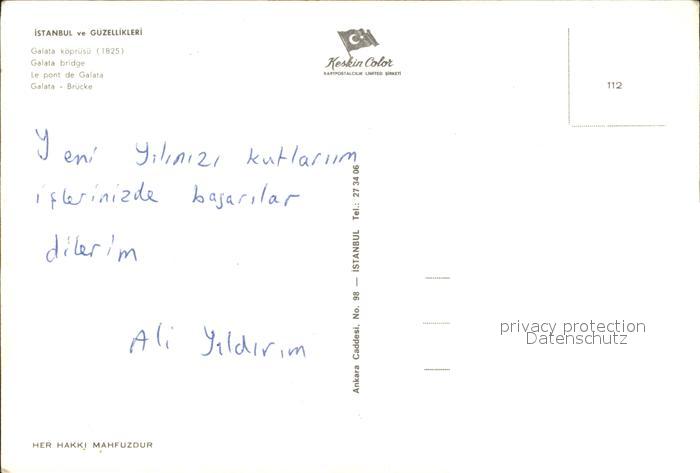 İSTANBUL ve GÜZELLİKLERİ
Galata köprüsü (1825)
Galata bridge
Le pont de Galata
Galata - Brücke
Keskin Color
KARTPOSTALCILIK LIMITED ŞİRKETİ
112
Yeni Yılınızı kutlarıım
işlerinizde başarılar
dilerim
Ali Yıldırım
Ankara Caddesi, No. 98 — İSTANBUL Tel.: 27 34 06
privacy protection
Datenschutz
HER HAKKI MAHFUZDUR